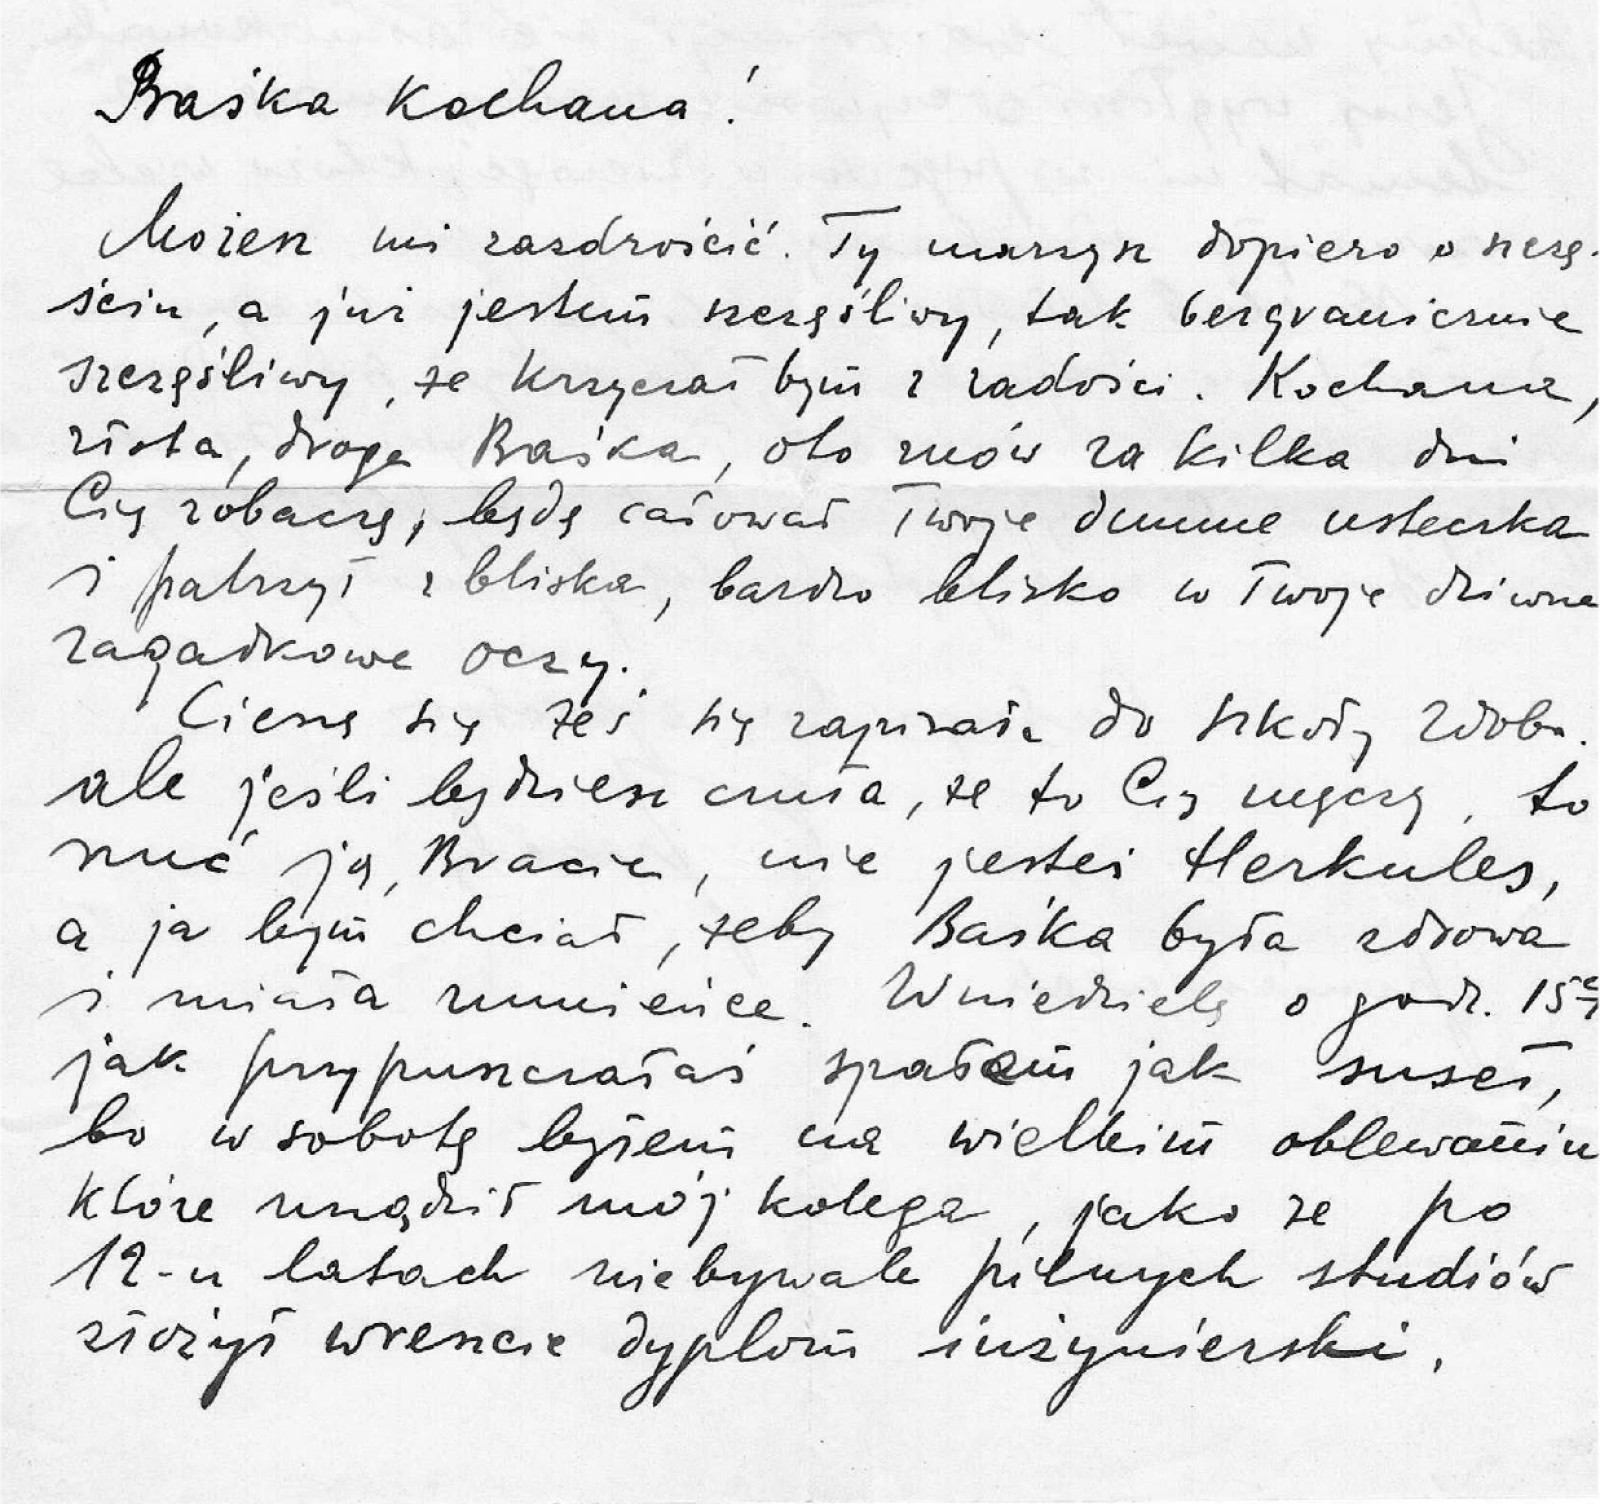 Baśka kochana!
Możesz mi zazdrościć. Ty marzysz dopiero o szczę-
ściu, a już jestem szczęśliwy, tak bezgranicznie
szczęśliwy, że krzyczał bym z radości. Kochana,
złota, droga Baśka, oto znów za kilka dni
Cię zobaczę, będę całował Twoje dumne usteczka
i patrzył z bliska, bardzo blisko w Twoje dziwne
zagadkowe oczy.
Cieszę się żeś się zapisała do szkoły zdob.
ale jeśli będziesz czuła, że to Cię męczy, to
rzuć ją, Bracie, nie jesteś Herkules,
a ja bym chciał, żeby Baśka była zdrowa
i miała rumieńce. W niedzielę o godz. 15
jak przypuszczałaś spałem jak suseł,
bo w sobotę byłem na wielkim oblewaniu
które urządził mój kolega, jako że po
12-u latach niebywale pilnych studiów
złożył wreszcie dyplom inżynierski.